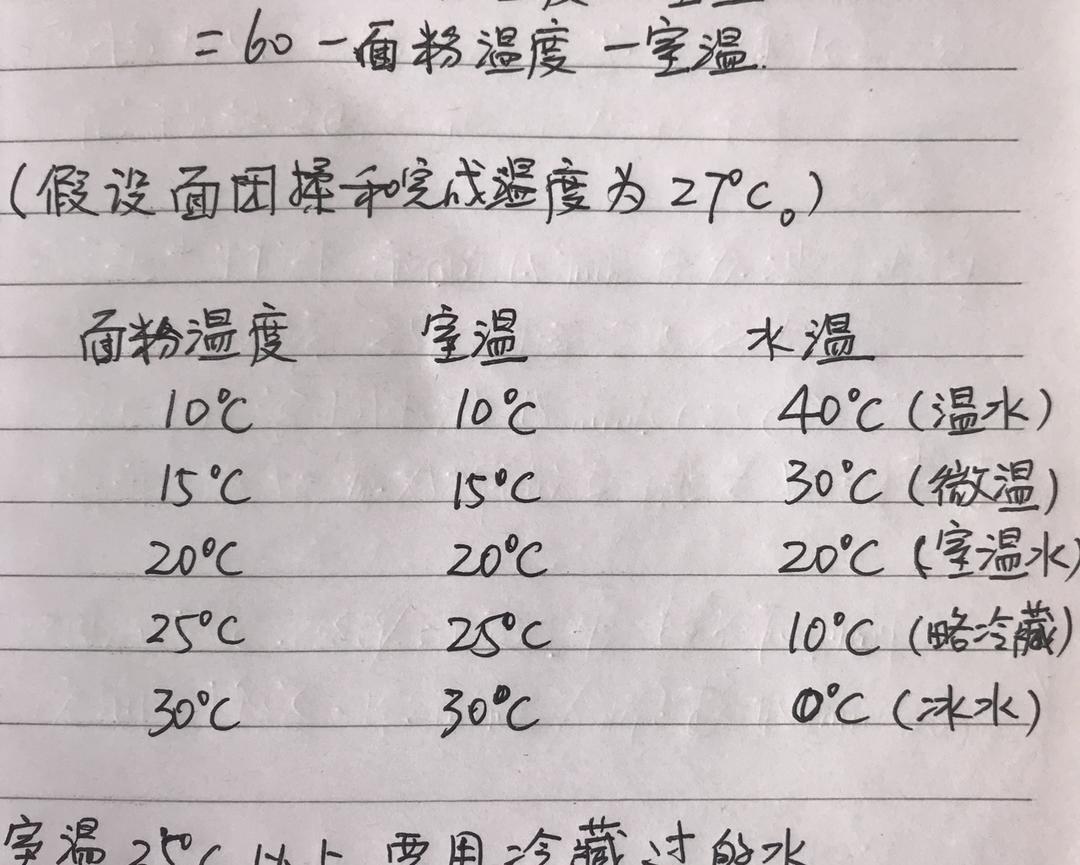 =60-面粉温度-室温.
(假设面团揉和完成温度为27℃。)
面粉温度 室温 水温
10℃ 10℃ 40℃(温水)
15℃ 15℃ 30℃(微温)
20℃ 20℃ 20℃(室温水)
25℃ 25℃ 10℃(略冷藏)
30℃ 30℃ 0℃(冰水)
室温25℃以上要用冷藏过的水